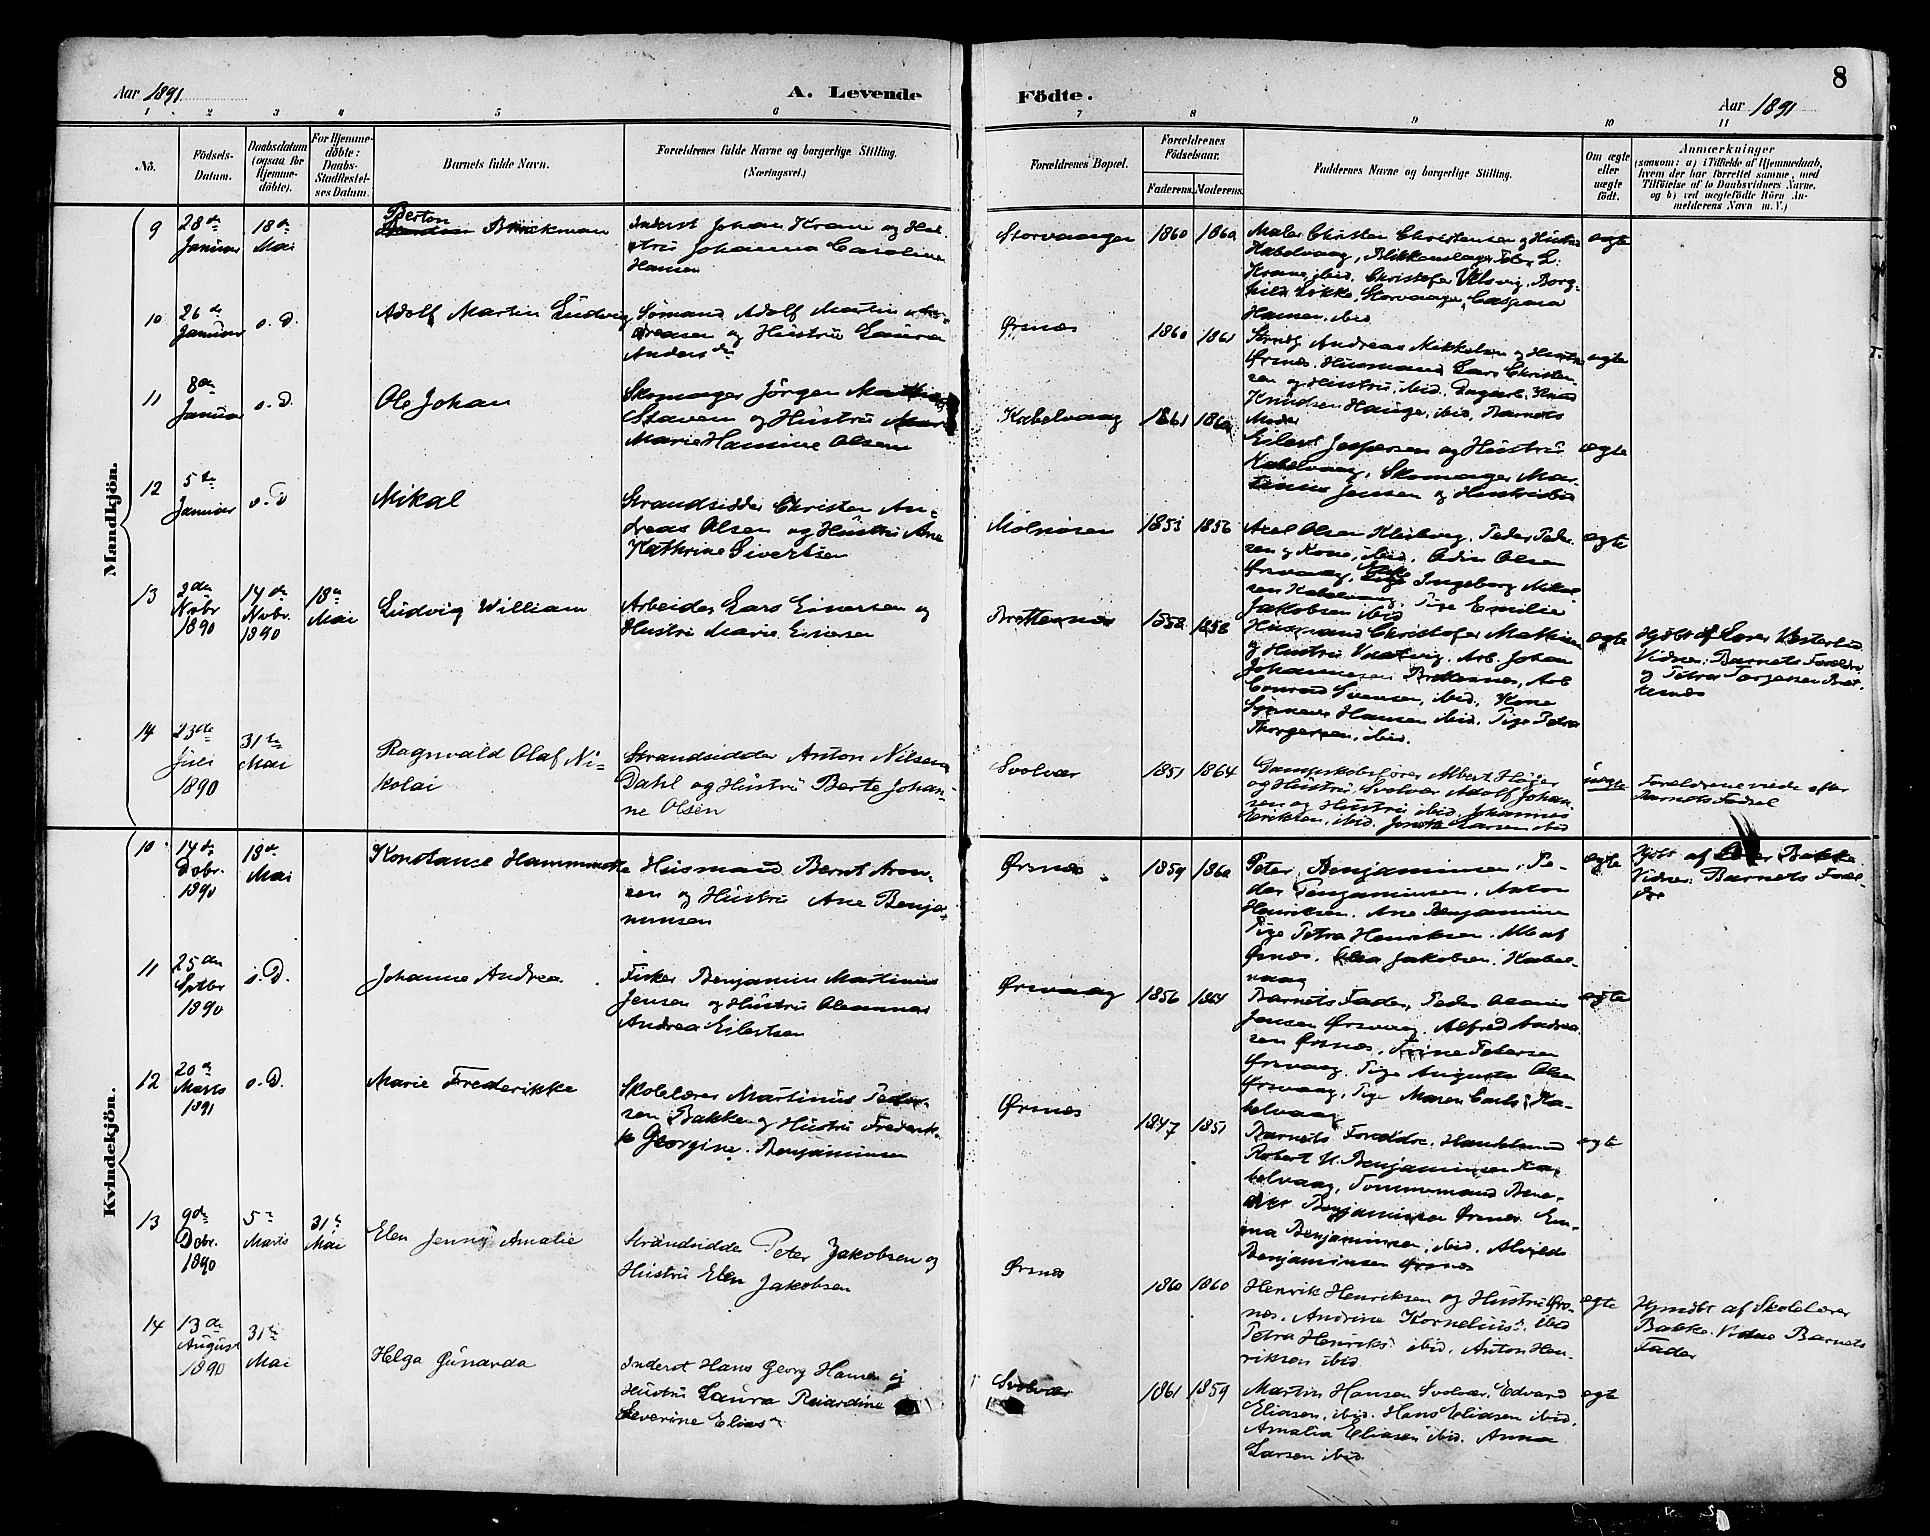 8
Aar 1891
A. Levende
Födte.
Aar 1891
1 2 3 4 5 6 7 8 9 10 11
No.
Födsels-
Datum.
Daabsdatum
(ogsaa for
Hjemme-
döbte).
For Hjemme-
döbte:
Daabs-
Stadfæstel-
ses Datum.
Barnets fulde Navn.
Forældrenes fulde Navne og borgerlige Stilling.
(Næringsvei.)
Forældrenes Bopæl.
Forældrenes
Födselsaar.
Faderens. Moderens.
Faddernes Navne og borgerlige Stilling.
Om ægte
eller
uægte
födt.
Anmærkninger
(saasom: a) i Tilfælde af Hjemmedaab,
hvem der har forrettet samme, med
Tilföielse af to Daabsvidners Navne.
og b) ved uægtefödte Börn An-
melderens Navn m. V.)
Mandkjön.
9
28de
Januar
18de
Mai
Berton
Brinckman
Inderst Johan Krane og Hu-
stru Johanna Caroline
Hansen
Storvaagen
1860 1860
Maler Christen Christensen og Hustru
Kabelvaag, Blikkenslager Peder L.
Krane ibid. Christofer Borg-
hild Lökke, Storvaagen, Caspara
Hansen, ibid.
ægte
10
26de
Januar
o. D.
Adolf Martin Ludvig
Sömand Adolf Martin An-
dreasen og Hustru Laura
Andersdr
Ørsnes
1860 1861
Andreas Mikkelsen og Hustru
Ørsnes. Husmand Lars Christen-
sen og Hustru, ibid. Dagarb. Knud
Knudsen Hauge, ibid, Barnets
Moder
ægte
11
8de
Januar
o. D.
Ole Johan
Skomager Jörgen
Staven og Hustru
Marie Hansine Olsen
Kabelvaag
1861 1860
Eilert Jespersen og Hustru
Kabelvaag, Skomager Mar-
tinus Jensen og Hustru ibid
ægte
12
5te
Januar
o. D
Mikal
Strandsidder Christen An-
dreas Olsen og Hustru Ane
Kathrine Sivertsen
Molnosen
1853 1856
Axel Olsen Peder Peder-
sen og Kone, ibid. Odin Olsen
Ørsvaag, Ingeborg Mikal-
sen Kabelvaag. Pige Emilie
Jakobsen ibid
ægte
13
3de
Novbr
1890
14de
Novbr.
1890
18de
Mai
Ludvig William
Arbeider Lars Eversen og
Hustru Marie Eversen
Brettesnes
1858 1858
Husmand Christofer Mathisen
og Hustru Arb. Johan
Johannesen Brettesnes, Arb
Conrad Svensen, ibid, Kone
Hansen ibid. Pige Petra
Thorgersen, ibid.
ægte
Hjdöbt af Lærer
Vidner: Barnets Forældre
og Petra Torgersen Bret-
tesnes
14
23de
Juli
1890
31te
Mai
Ragnvald Olaf Ni-
kolai
Strandsidder Anton Nilsen
Dahl og Hustru Berte Johan-
ne Olsen
Svolvær
1851 1864
Dampskibsförer Albert Höier
og Hustru Svolvær Adolf Johan-
sen og Hustru ibid. Johannes
Eriksen, ibid. Larsen ibid
uægte
Forældrene viede efter
Barnets Födsel
Kvindekjön.
10
14de
Dcbr.
1890
18de
Mai
Konstanse
Husmand Bernt Aron-
sen og Hustru Ane Benja-
minsen
Ørsnes
1859 1860
Peter Benjaminsen, Pe-
der Benjaminsen, Anton
Henriksen. Ane Benjaminsen
Pige Petra Henriksen. Alle af
Ørsnes. Jakobsen. Kabel-
vaag
ægte
Hjdöbt af Lærer Bakke
Vidner: Barnets Foræl-
dre
11
25de
Sptbr
1890
o. D.
Johanne Andrea
Fisker Benjamin Martinus
Jensen og Hustru Oleanna
Andrea Eilertsen
Ørsvaag
1856 1864
Barnets Fader, Peder
Jensen Ørsvaag. Alfred Andrea-
sen Ørsnes, Trine Petersen
Ørsvaag, Pige Augusta Olsen
Ørsvaag, Pige Maren Carls. Ka-
belvaag
ægte
12
20de
Marts
1891
o. D.
Marie Frederikke
Skolelærer Martinus Peder-
sen Bakken og Hustru Frederik-
ke Georgine Benjaminsen
Ørsnes
1847 1851
Barnets Forældre, Handelsmand
Robert N. Benjaminsen Ka-
belvaag, Tömmermand Bene-
dikt Benjaminsen Ørsnes. Em-
ma Benjaminsen, ibid, Alvilde
Benjaminsen Ørsnes
ægte
13
9de
Dcbr.
1890
5te
Marts
31te
Mai
Elen Jenny Amalie
Strandsidde Peter Jakobsen og
Hustru Elen Jakobsen
Ørsnes
1860 1860
Henrik Henriksen og Hustru Ørs-
nes. Andrine Kornelius. ibid
Petra Henriks. ibid. Anton Hen-
riksen ibid
ægte
Hjmdöbt af Skolelærer
Bakke. Vidne Barnets
Fader
14
13de
August
1890
31te
Mai
Helga Gunarda
Inderst Hans Georg Hansen og
Hustru Laura Rikardine
Severine Eliasdr
Svolvær
1861 1859
Martin Hansen Svolvær, Edvard
Eliasen, ibid. Hans Eliasen ibid.
Amalia Eliasen ibid. Anna
Larsen ibid.
ægte